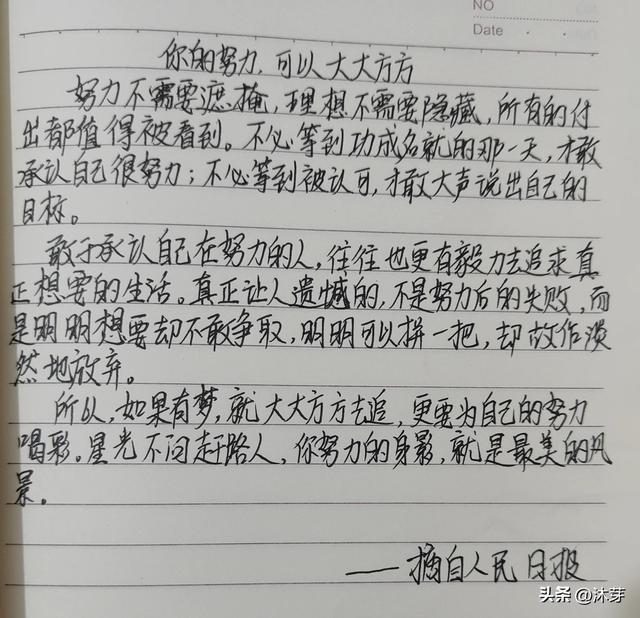 NO
Date
你的努力，可以大大方方
努力不需要遮掩，理想不需要隐藏，所有的付
出都值得被看到。不必等到功成名就的那一天，才敢
承认自己很努力；不必等到被认可，才敢大声说出自己的
目标。
敢于承认自己在努力的人，往往也更有毅力去追求真
正想要的生活。真正让人遗憾的，不是努力后的失败，而
是明明想要却不敢争取，明明可以拼一把，却故作淡
然地放弃。
所以，如果有梦，就大大方方去追，更要为自己的努力
喝彩。星光不问赶路人，你努力的身影，就是最美的风
景。
——摘自人民日报
头条 @沐芽